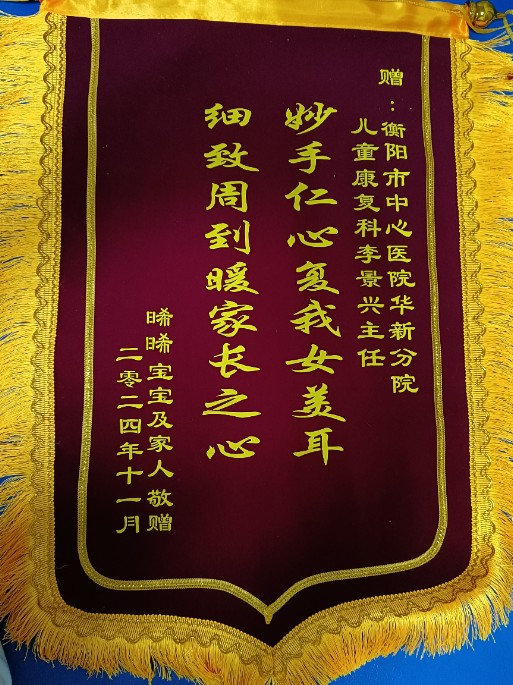 赠：衡阳市中心医院华新分院
儿童康复科李景兴主任
妙手仁心复我女美耳
细致周到暖家长之心
晞晞宝宝及家人敬赠
二零二四年十一月